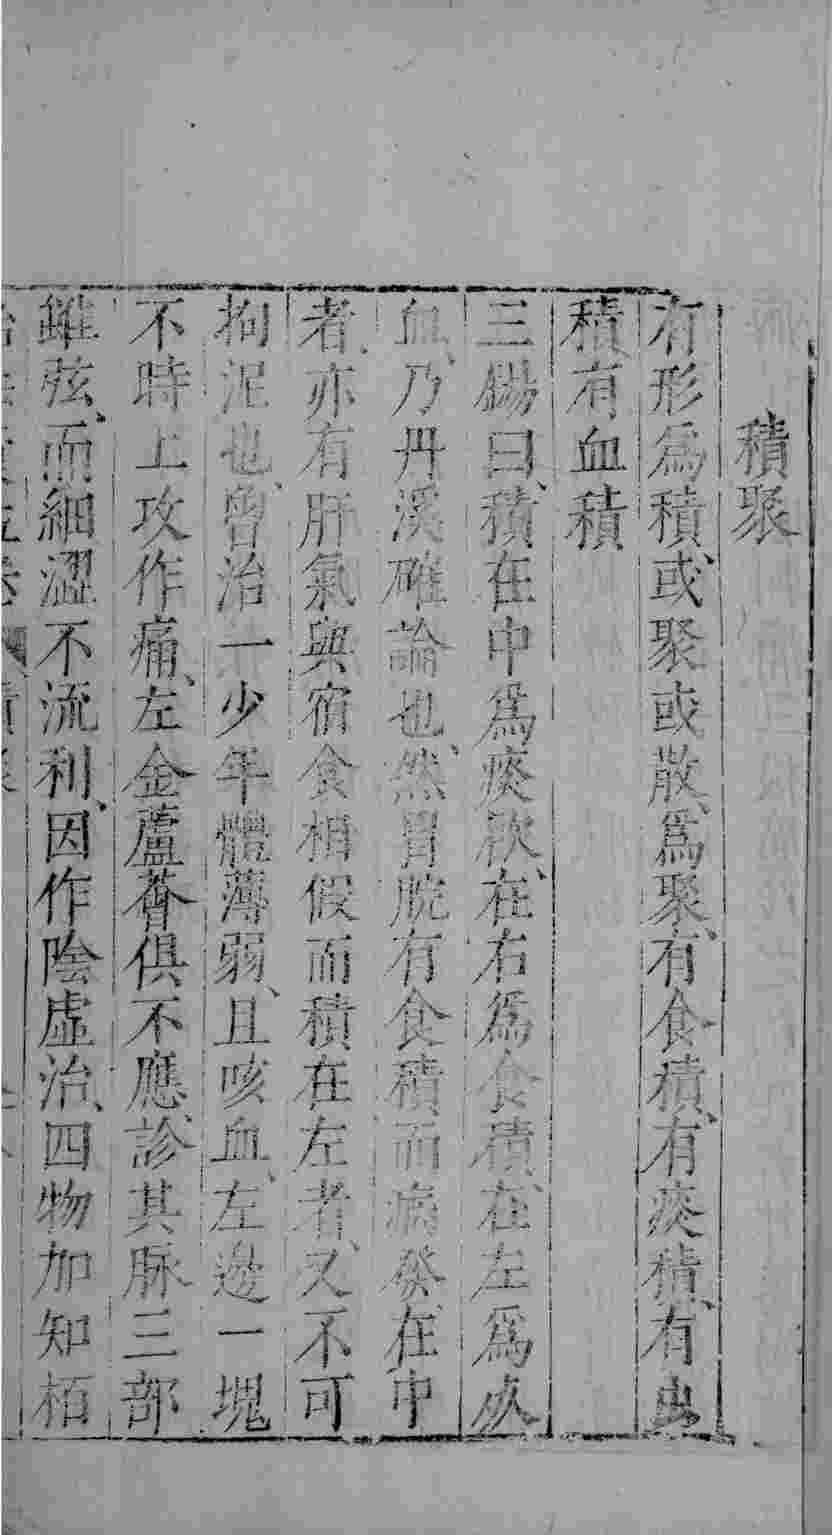 積聚
有形爲積、或聚或散、爲聚、有食積、有痰積、有虫
積有血積
三錫曰、積在中爲痰飲、在右爲食積、在左爲
血、乃丹溪確論也、然胃脘有食積而病發在中
者、亦有肝氣與宿食相假而積在左者、又不可
拘泥也、曾治一少年體薄弱、且咳血、左邊一塊
不時上攻作痛、左金蘆薈俱不應、診其脉三部
雖弦、而細澀不流利、因作陰虛治、四物加知栢